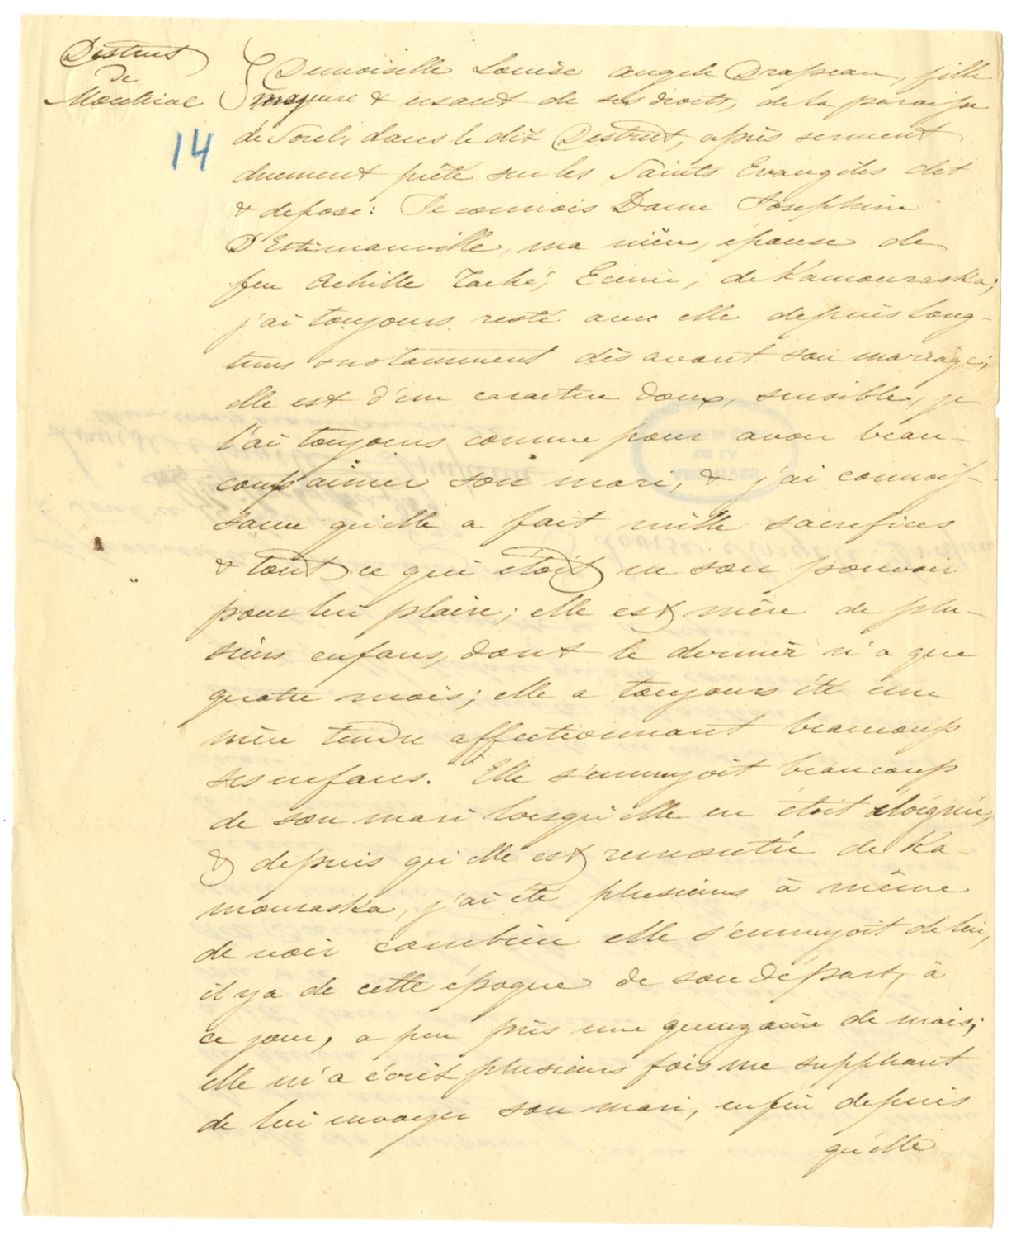 District
de
Montréal
14
Demoiselle Louise Angele Drapeau, fille
majeure & usant de ses droits, de la paroisse
de Sorel, dans le dit District, après serment
duement prêté sur les Saints Evangiles dit
& depose: Je connois Dame Josephine
D'Estimauville, ma nièce, épouse de
feu Achille Taché, Ecuier, de Kamouraska;
j'ai toujours resté avec elle depuis long-
tems & notamment dès avant son marriage;
elle est d'un caractère doux, sensible, je
l'ai toujours connue pour avoir beau-
coup aimer son mari, & j'ai connois-
sance qu'elle a fait mille sacrifices
& tout ce qui étoit en son pouvoir
pour lui plaire; elle est mère de plu-
sieurs enfans, dont le dernier n'a que
quatre mois; elle a toujours été une
mère tendre affectionnant beaucoup
ses enfans. Elle s'ennuyoit beaucoup
de son mari lorsqu'elle en étoit éloignée,
& depuis qu'elle est remontée de Ka-
mouraska, j'ai été plusieurs à même
de voir combien elle s'ennuyoit de lui,
il y a de cette époque de son départ, à
ce jour, a peu près une quinzaine de mois;
elle m'a écrit plusieurs fois me suppliant
de lui envoyer son mari, enfin depuis
qu'elle